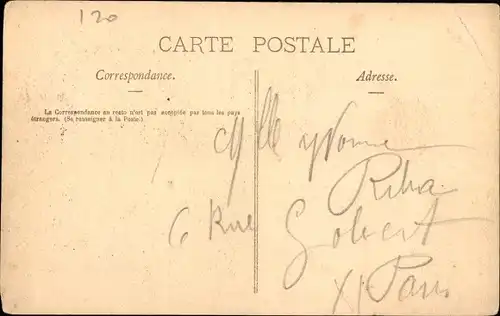 120
CARTE POSTALE
Correspondance.
Adresse.
La Correspondance au recto n'est pas acceptée par tous les pays
étrangers. (Se renseigner à la Poste.)
Mlle Yvonne
Riha
6 Rue Gobert
XI Paris